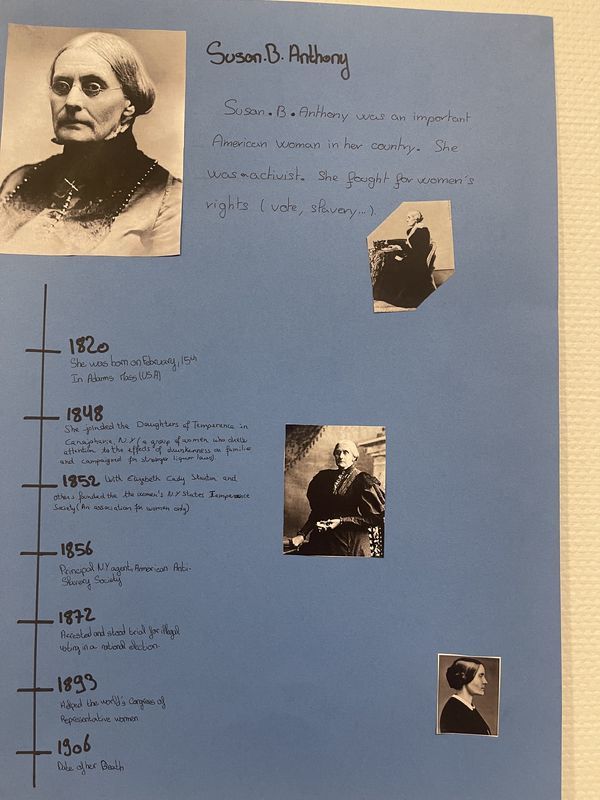 Susan.B. Anthony
Susan.B.Anthony was an important
American woman in her country. She
was activist. She fought for women's
rights (vote, slavery...).
1820
She was born on February, 15th
In Adams Mass (USA)
1848
She joinded the Daughters of Temperence in
N.Y (a group of women who drew
attention to the effects of drunkenness on families
and campaigned for stronger liquor laws).
1852 With Elizabeth Cady Stanton and
others founded the the women's N.Y States Temperence
Society (An association for women only)
1856
Principal N.Y agent, American Anti-
Slavery Society
1872
Arrested and stood trial for illegal
voting in a national election.
1893
Helped the world's Congress of
Representative women
1906
Date of her Death